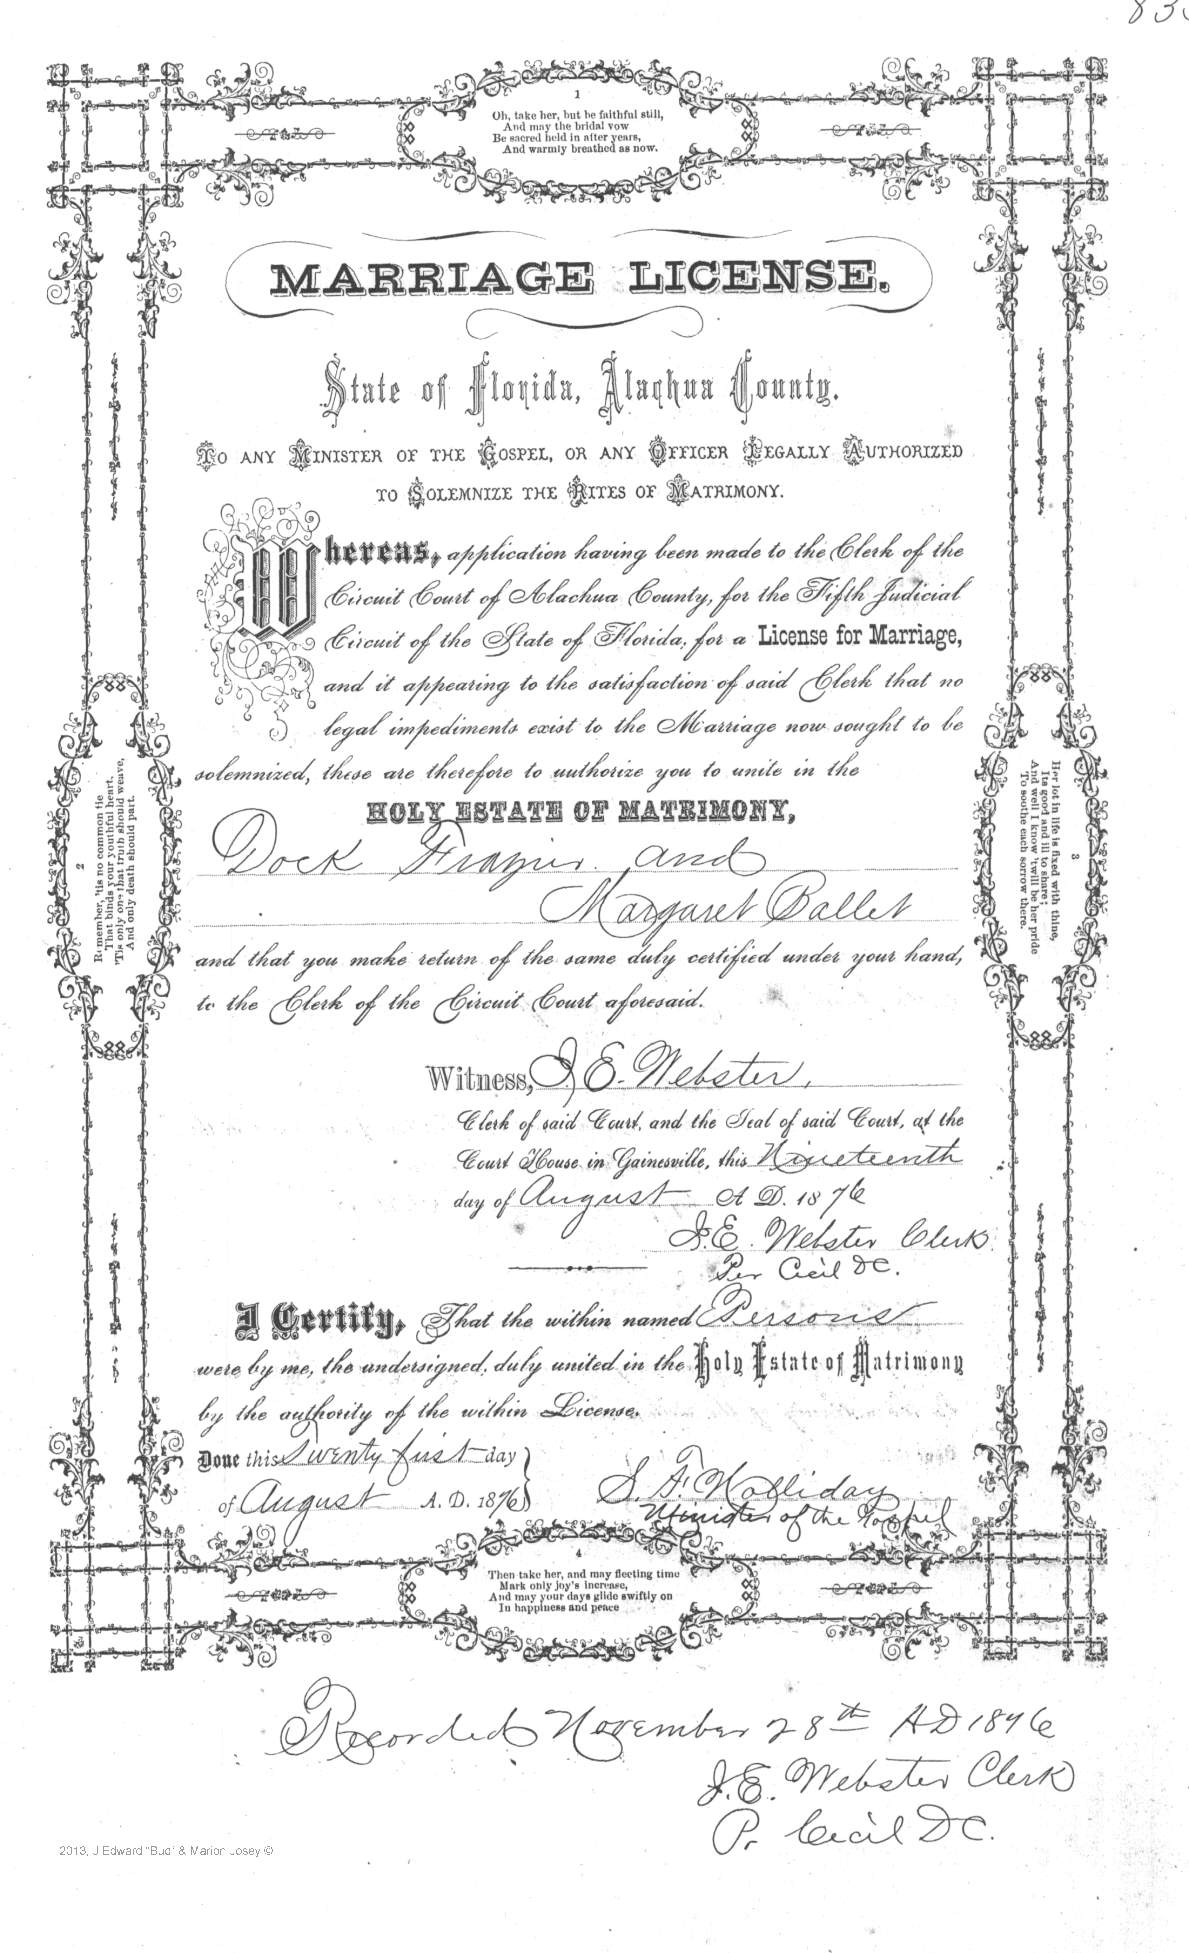 1
Oh, take her, but be faithful still,
And may the bridal vow
Be sacred held in after years,
And warmly breathed as now.
MARRIAGE LICENSE.
State of Florida, Alachua County.
TO ANY MINISTER OF THE GOSPEL, OR ANY OFFICER LEGALLY AUTHORIZED
TO SOLEMNIZE THE RITES OF MATRIMONY.
Whereas, application having been made to the Clerk of the
Circuit Court of Alachua County, for the Fifth Judicial
Circuit of the State of Florida, for a License for Marriage,
and it appearing to the satisfaction of said Clerk that no
legal impediments exist to the Marriage now sought to be
solemnized, these are therefore to authorize you to unite in the
HOLY ESTATE OF MATRIMONY,
Dock Frazier and
Margaret Ballet
and that you make return of the same duly certified under your hand,
to the Clerk of the Circuit Court aforesaid.
2
Remember, 'tis no common tie
That binds your youthful heart,
'Tis only one that truth should weave,
And only death should part.
3
Her lot in life is fixed with thine,
Its good and ill to share;
And well I know 'twill be her pride
To soothe each sorrow there.
Witness, J. E. Webster,
Clerk of said Court, and the Seal of said Court, at the
Court House in Gainesville, this Nineteenth
day of August A D. 1876
J. E. Webster Clerk
Per Cecil DC.
I Certify, That the within named Persons
were by me, the undersigned, duly united in the Holy Estate of Matrimony
by the authority of the within License.
Done this Twenty first day
of August A. D. 1876
S. F. Halliday
Minister of the Gospel
4
Then take her, and may fleeting time
Mark only joy's increase,
And may your days glide swiftly on
In happiness and peace
Recorded November 28th AD 1876
J. E. Webster Clerk
Pr Cecil DC.
2013, J Edward "Bud" & Marion Josey ©